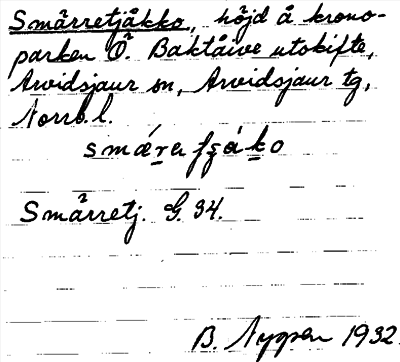 Smårretjåkko, höjd å krono-
parken Ö. Baktåive utskifte,
Arvidsjaur sn, Arvidsjaur tg,
Norrb. l.
smǽra
Smårretj. G. 34.
B. Nyman 1932.